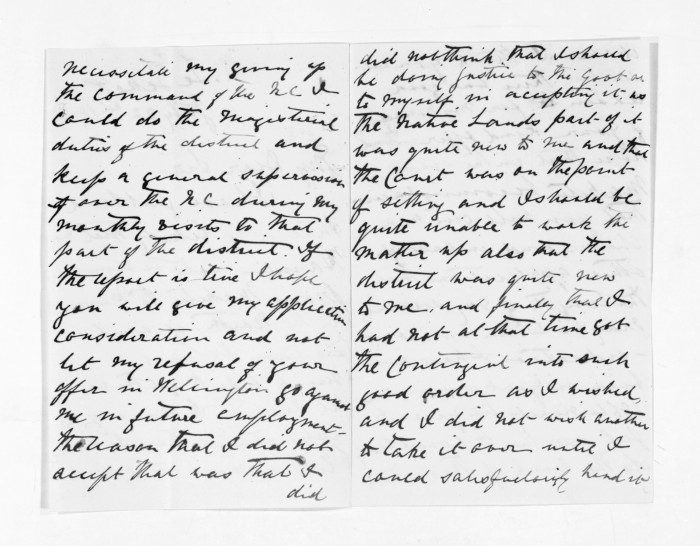 necessitate my giving up
the command of the N.C. I
could do the Magisterial
duties of the district and
keep a general supervision
over the N.C during my
monthly visits to that
part of the district. If
the report is true I hope
you will give my application
consideration and not
let my refusal of your
offer in Wellington go against
me in future employment.
the reason that I did not
accept that was that I
did
did not think that I should
be doing justice to the Govt or
to myself in accepting it as
the Native Lands part of it
was quite new to me and that
the Court was on the point
of setting and I should be
quite unable to work the
matter up also that the
district was quite new
to me, and finally that I
had not at that time got
the Contingent into such
good order as I wished,
and I did not wish another
to take it over until I
could satisfactorily hand it